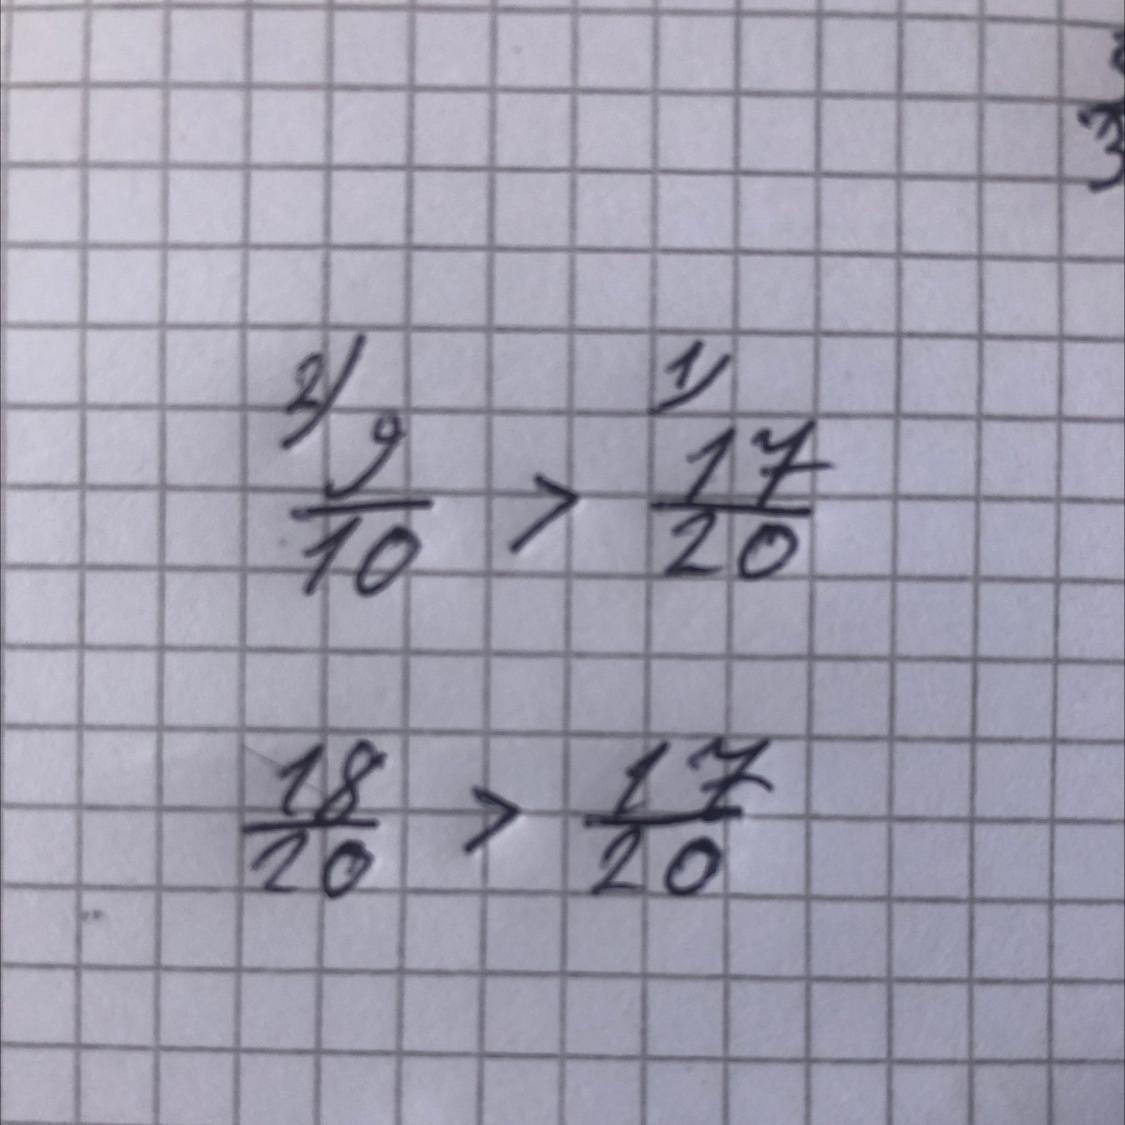 2/ 9/10 > 1/ 17/20
18/20 > 17/20
3